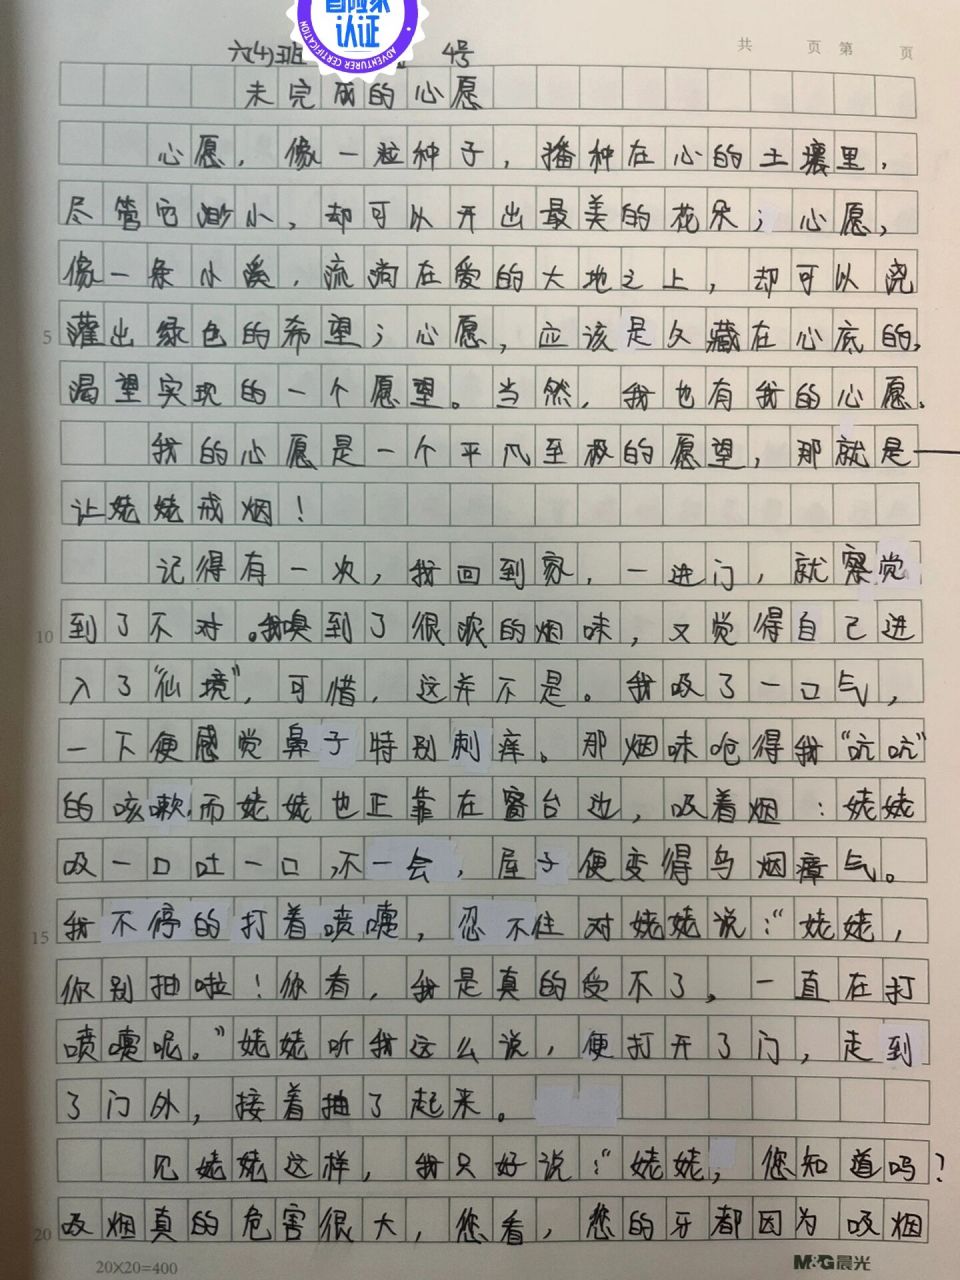 冒险家
认证
ADVENTURER CERTIFICATION
六(4)班 4号
共 页 第 页
未完成的心愿
心愿，像一粒种子，播种在心的土壤里，
尽管它渺小，却可以开出最美的花朵；心愿，
像一条小溪，流淌在爱的大地之上，却可以浇
5 灌出绿色的希望；心愿，应该是久藏在心底的，
渴望实现的一个愿望。当然，我也有我的心愿。
我的心愿是一个平凡至极的愿望，那就是——
让姥姥戒烟！
记得有一次，我回到家，一进门，就察觉
10 到了不对。我嗅到了很浓的烟味，又觉得自己进
入了“仙境”，可惜，这并不是。我吸了一口气，
一下便感觉鼻子特别刺痒。那烟味呛得我“吭吭”
的咳嗽，而姥姥也正靠在窗台边，吸着烟：姥姥
吸一口吐一口，不一会，屋子便变得乌烟瘴气。
15 我不停的打着喷嚏，忍不住对姥姥说：“姥姥，
你别抽啦！你看，我是真的受不了，一直在打
喷嚏呢。”姥姥听我这么说，便打开了门，走到
了门外，接着抽了起来。
见姥姥这样，我只好说：“姥姥，您知道吗？
20 吸烟真的危害很大，您看，您的牙都因为吸烟
20×20=400
M&G晨光